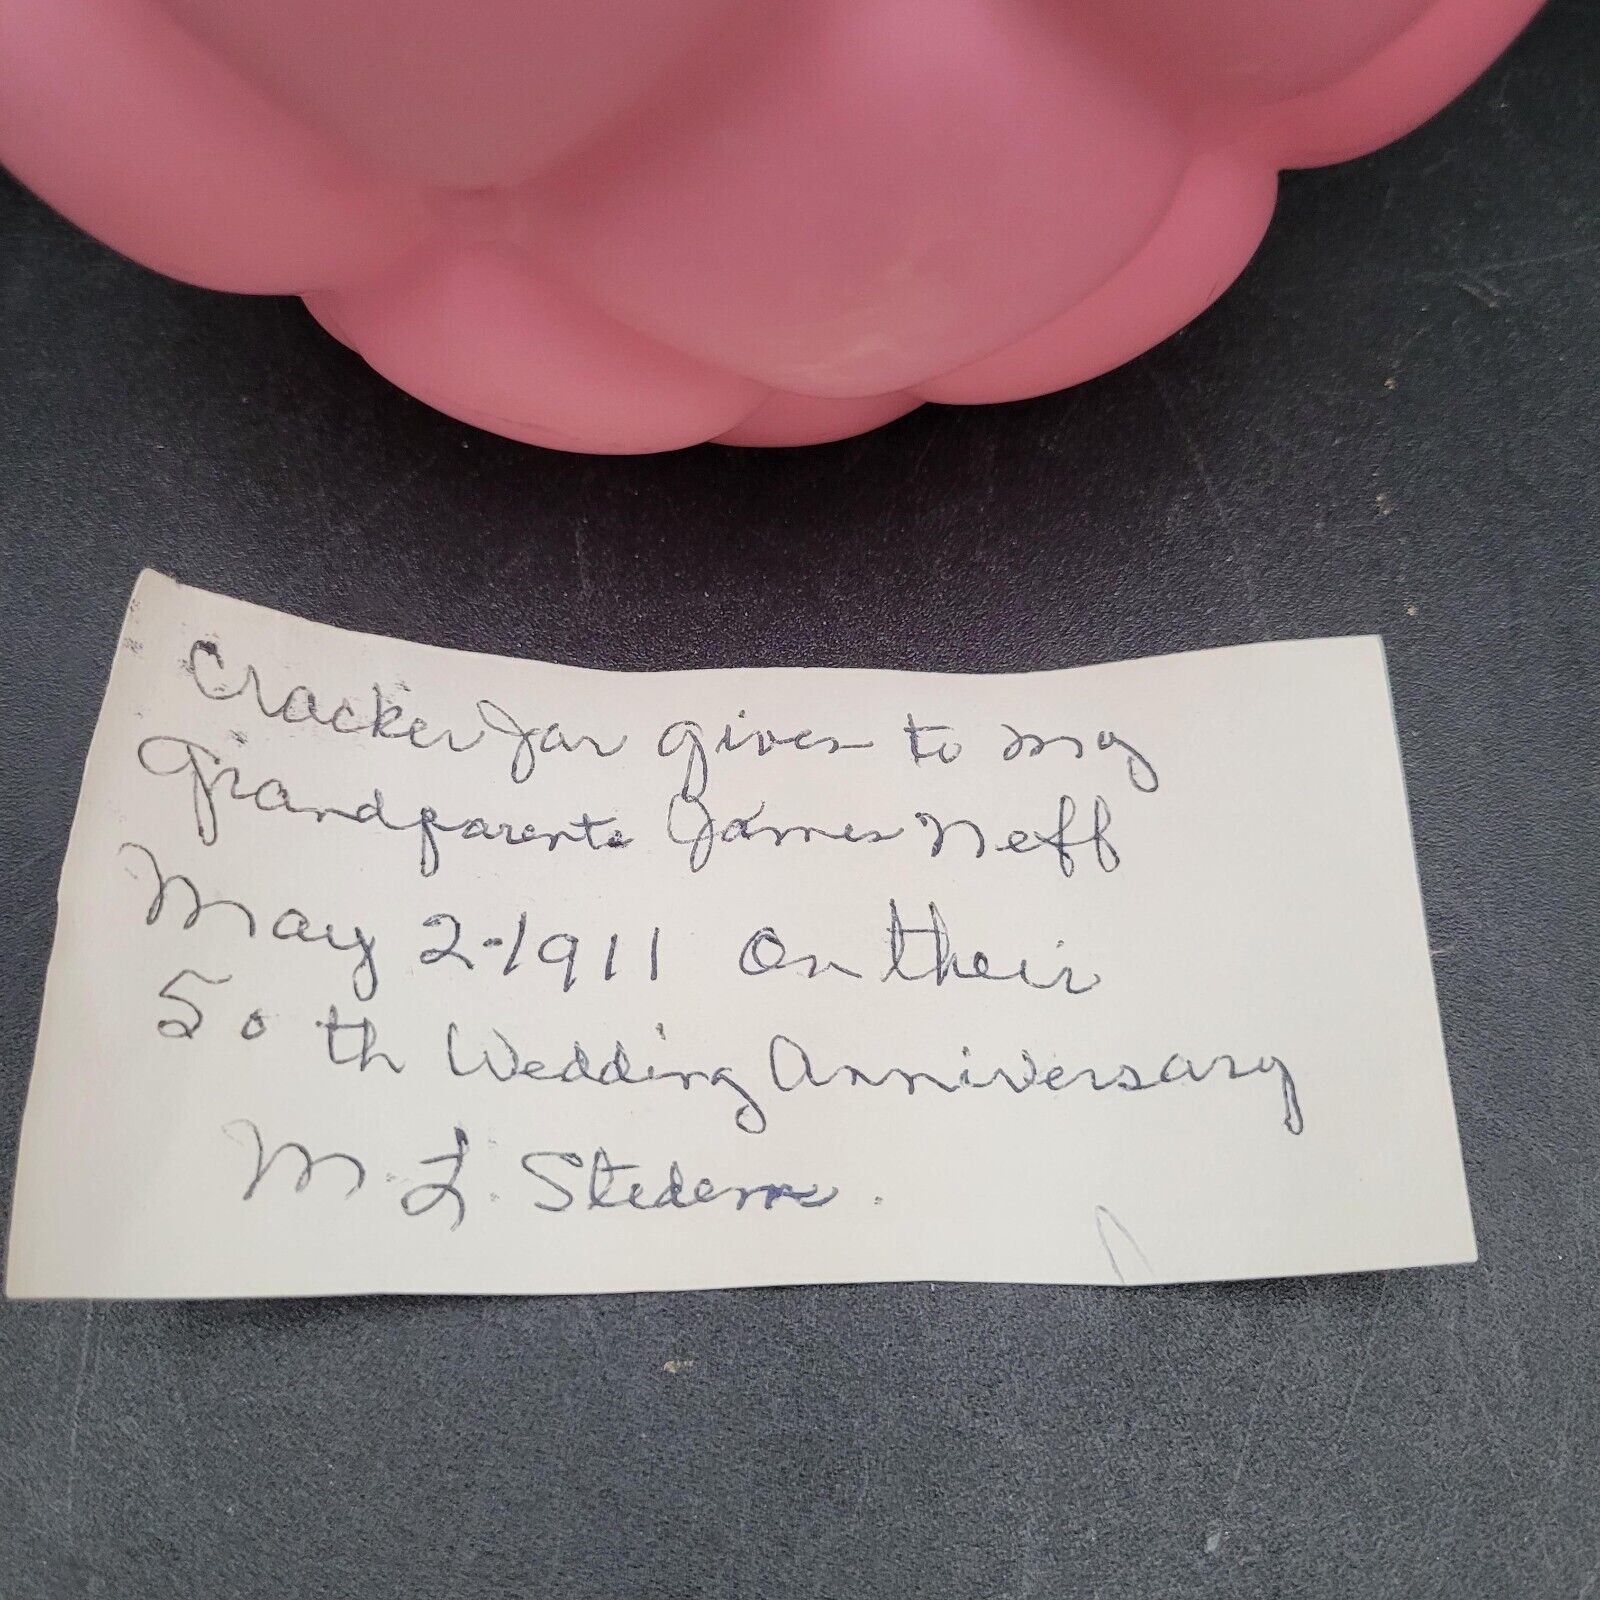 Cracker Jar given to my
Grandparents James Neff
May 2-1911 on their
50th Wedding Anniversary
M. L. Stedem.